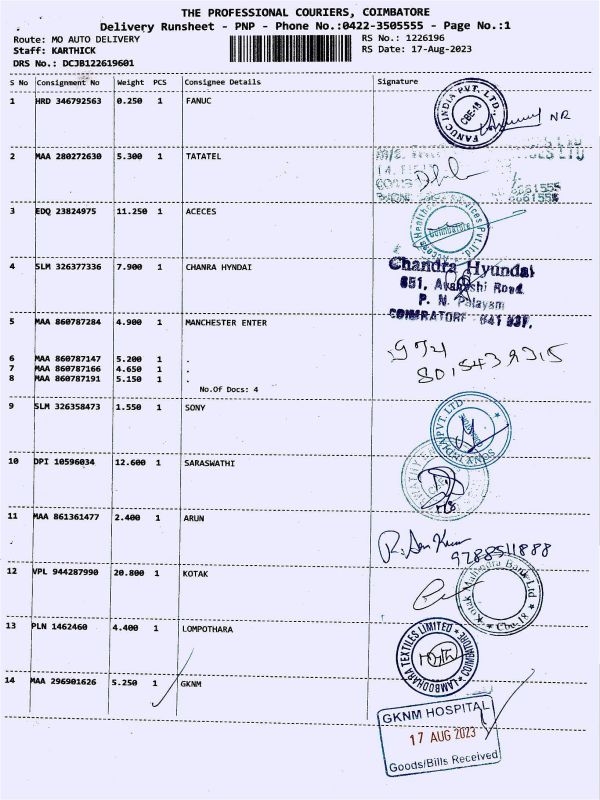 THE PROFESSIONAL COURIERS, COIMBATORE
Delivery Runsheet - PNP - Phone No.:0422-3505555 - Page No.:1
Route: MO AUTO DELIVERY RS No.: 1226196
Staff: KARTHICK RS Date: 17-Aug-2023
DRS No.: DCJB122619601
S No Consignment No Weight PCS Consignee Details Signature
1 HRD 346792563 0.250 1 FANUC
FANUC INDIA PVT. LTD. CBE-18
NR
2 MAA 280272630 5.300 1 TATATEL
3 EDQ 23824975 11.250 1 ACECES
Healthcare Services Pvt.Ltd Coimbatore
4 SLM 326377336 7.900 1 CHANRA HYNDAI
Chandra Hyundai
851, Avanashi Road
P. N. Palayam
COIMBATORE - 641 037.
5 MAA 860787284 4.900 1 MANCHESTER ENTER
6 MAA 860787147 5.200 1 .
7 MAA 860787166 4.650 1 .
8 MAA 860787191 5.150 1 .
No.Of Docs: 4
9 SLM 326358473 1.550 1 SONY
INDIA PVT. LTD
10 DPI 10596034 12.600 1 SARASWATHI
11 MAA 861361477 2.400 1 ARUN
9788511888
12 VPL 944287990 20.800 1 KOTAK
Kotak Mahindra Bank Ltd Cbe-18
13 PLN 1462460 4.400 1 LOMPOTHARA
LAMBODHARA TEXTILES LIMITED COIMBATORE
14 MAA 296901626 5.250 1 GKNM
GKNM HOSPITAL
17 AUG 2023
Goods/Bills Received